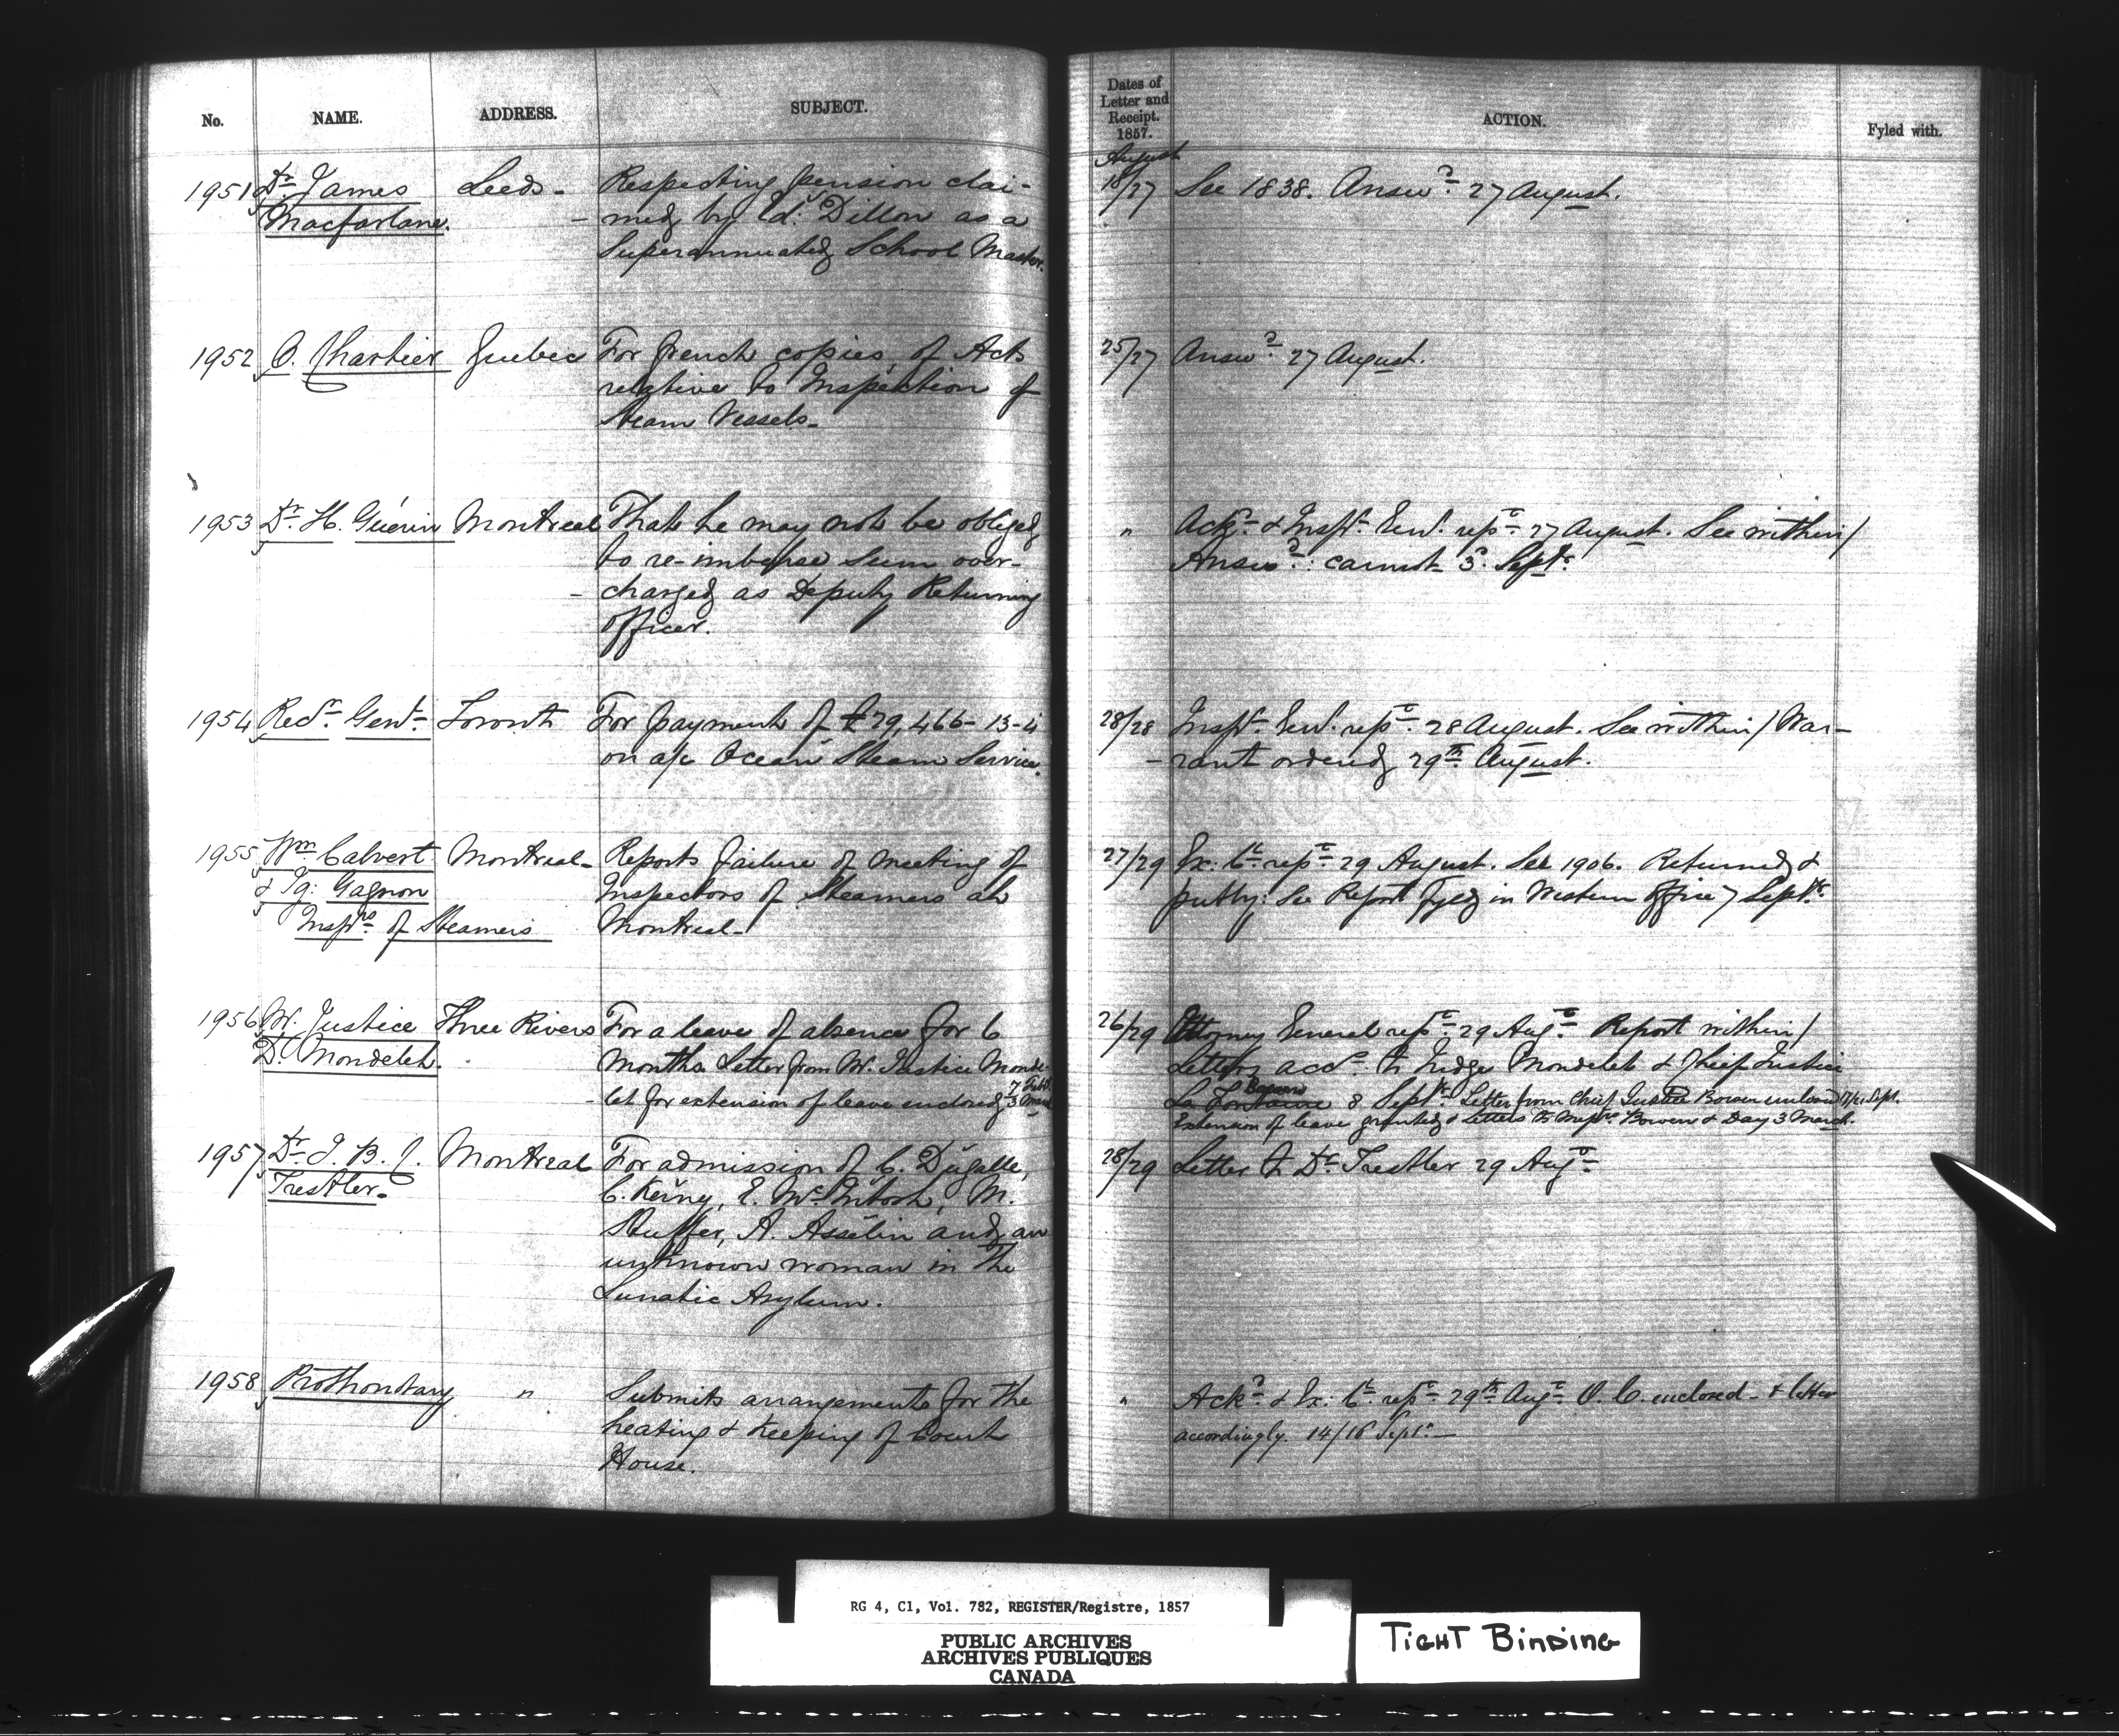 No. NAME. ADDRESS. SUBJECT.
Dates of Letter and Receipt. 1857. ACTION. Fyled with.
August
1951 Dr. James Leeds - Respecting pension clai- 18/27 See 1838. Answd. 27 August.
Macfarlane. - med by Ed: Dillon as a
Superannuated School Master.
1952 O. Chartier Quebec For french copies of Acts 25/27 Answd. 27 August.
relative to Inspection of
Steam Vessels.
1953 Dr. H. Guérin Montreal That he may not be obliged " Ackd. & Inspr. Genl. refd. 27 August. See within/
to re-imburse sum over- Answd.: cannot 3 Septr.
- charged as Deputy Returning
Officer.
1954 Recr. Genl. Toronto For payment of £29,466-13-4 28/28 Inspr. Genl. refd. 28 August. See within/ War-
on a/c Ocean Steam Service. - rant ordered 29th August.
1955 Wm Calvert Montreal - Reports failure of meeting of 27/29 Ex: Cl. refd. 29 August. See 1906. Returned &
& Ig: Gagnon Inspectors of Steamers at putby: See Report fyled in Western Office 7 Septr.
Insprs. of Steamers Montreal -
1956 Mr. Justice Three Rivers For a leave of absence for 6 26/29 Attorney General refd. 29 Augt. Report within/
D. Mondelet. months. Letter from Mr. Justice Monde- Letters accd. to Judge Mondelet & Chief Justice
- let for extension of leave enclosed La Fontaine Bowen 8 Septr. Letter from Chief Justice Bowen enclosed Sept.
Extension of leave granted & letters to Messrs. Bowen & Day 3 March.
1957 Dr. J. B. J. Montreal For admission of C. Dugalle, 28/29 Letter to Dr. Trestler 29 Augt.
Trestler. C. Keiny, E. McIntosh, M.
Stuffer, A. Asselin and an
unknown woman in the
Lunatic Asylum.
1958 Prothonotary " Submits arrangements for the " Ackd. & Ex: Cl. refd. 29th Augt. O. C. enclosed - & letter
heating & keeping of Court accordingly. 14/16 Sept.
House.
RG 4, C1, Vol. 782, REGISTER/Registre, 1857
PUBLIC ARCHIVES
ARCHIVES PUBLIQUES
CANADA
TIGHT BINDING